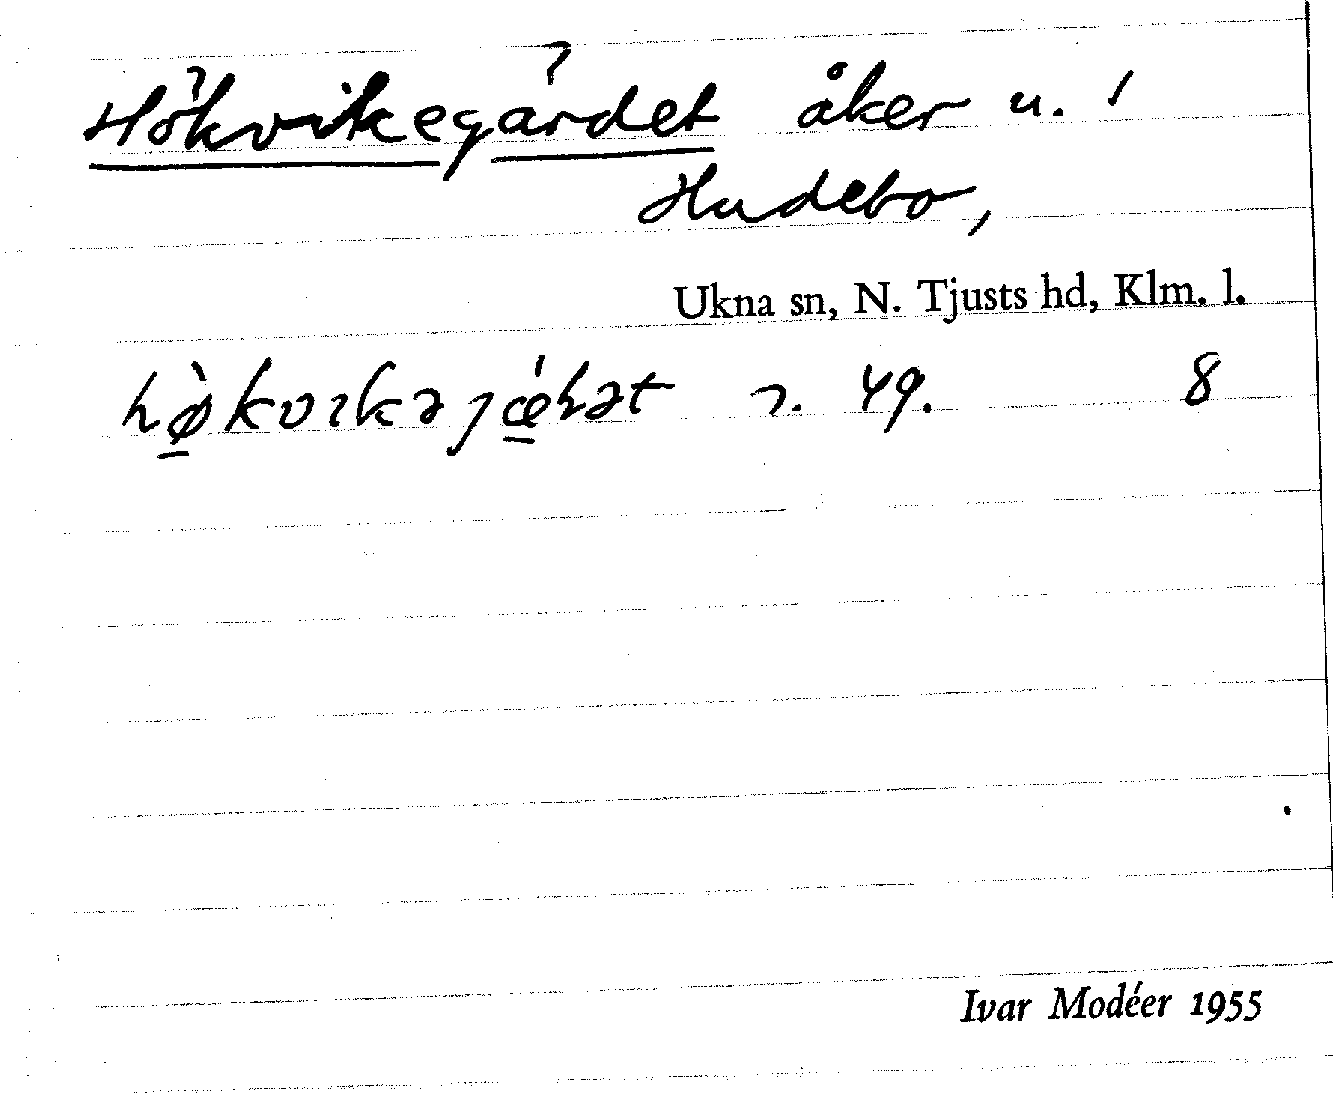 Hökvikegärdet åker u. /
Hudebo,
Ukna sn, N. Tjusts hd, Klm. l.
49. 8
Ivar Modéer 1955